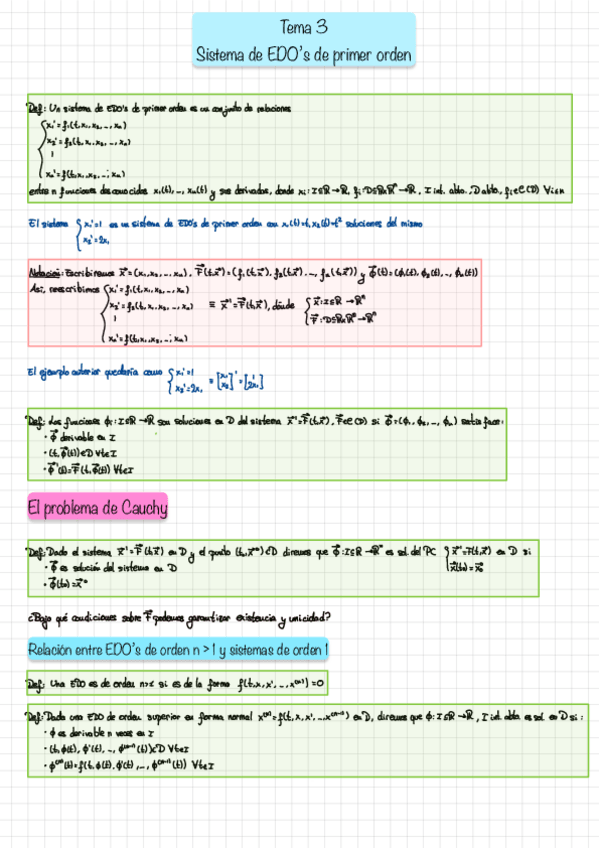 Tema 3
Sistema de EDO's de primer orden
Def: Un sistema de EDO's de primer orden es un conjunto de relaciones
x₁'=f₁(t,x₁,x₂,...,xₙ)
x₂'=f₂(t,x₁,x₂,...,xₙ)
⋮
xₙ'=fₙ(t,x₁,x₂,...,xₙ)
entre n funciones desconocidas x₁(t),...,xₙ(t) y sus derivadas, donde xᵢ:I⊆ℝ→ℝ, fᵢ:D⊆ℝxℝⁿ→ℝ, I int. abto., D abto, fᵢ∈C(D) ∀i∈n
El sistema { x₁'=1 es un sistema de EDO's de primer orden con x₁(t)=t, x₂(t)=t² soluciones del mismo
x₂'=2x₁
Notación: Escribiremos x⃗=(x₁,x₂,...,xₙ), F⃗(t,x⃗)=(f₁(t,x⃗),f₂(t,x⃗),...,fₙ(t,x⃗)) y φ⃗(t)=(φ₁(t),φ₂(t),...,φₙ(t))
Así, reescribimos { x₁'=f₁(t,x₁,...,xₙ)
x₂'=f₂(t,x₁,x₂,...,xₙ) ≡ x⃗'=F⃗(t,x⃗), donde { x⃗:I⊆ℝ→ℝⁿ
⋮ F⃗:D⊆ℝxℝⁿ→ℝⁿ
xₙ'=fₙ(t,x₁,x₂,...,xₙ)
El ejemplo anterior quedaría como { x₁'=1 ≡ [x₁ x₂]' = [1 2x₁]
x₂'=2x₁
Def: Las funciones φᵢ:I⊆ℝ→ℝ son soluciones en D del sistema x⃗'=F⃗(t,x⃗), F⃗∈C(D) si φ⃗=(φ₁,φ₂,...,φₙ) satisface:
• φ⃗ derivable en I
• (t,φ⃗(t))∈D ∀t∈I
• φ⃗'(t)=F⃗(t,φ⃗(t)) ∀t∈I
El problema de Cauchy
Def: Dado el sistema x⃗'=F⃗(t,x⃗) en D y el punto (t₀,x⃗⁰)∈D diremos que φ⃗:I⊆ℝ→ℝⁿ es sol. del PC { x⃗'=F(t,x⃗) en D si
• φ⃗ es solución del sistema en D x⃗(t₀)=x⃗₀
• φ⃗(t₀)=x⃗⁰
¿Bajo qué condiciones sobre F⃗ podemos garantizar existencia y unicidad?
Relación entre EDO's de orden n > 1 y sistemas de orden 1
Def: Una EDO es de orden si es de la forma f(t,x,x',...,x⁽ⁿ⁾)=0
Def: Dada una EDO de orden superior en forma normal x⁽ⁿ⁾=f(t,x,x',...,x⁽ⁿ⁻¹⁾) en D, diremos que φ:I⊆ℝ→ℝ, I int. abto es sol. en D si:
• φ es derivable n veces en I
• (t,φ(t),φ'(t),...,φ⁽ⁿ⁻¹⁾(t))∈D ∀t∈I
• φ⁽ⁿ⁾(t)=f(t,φ(t),φ'(t),...,φ⁽ⁿ⁻¹⁾(t)) ∀t∈I